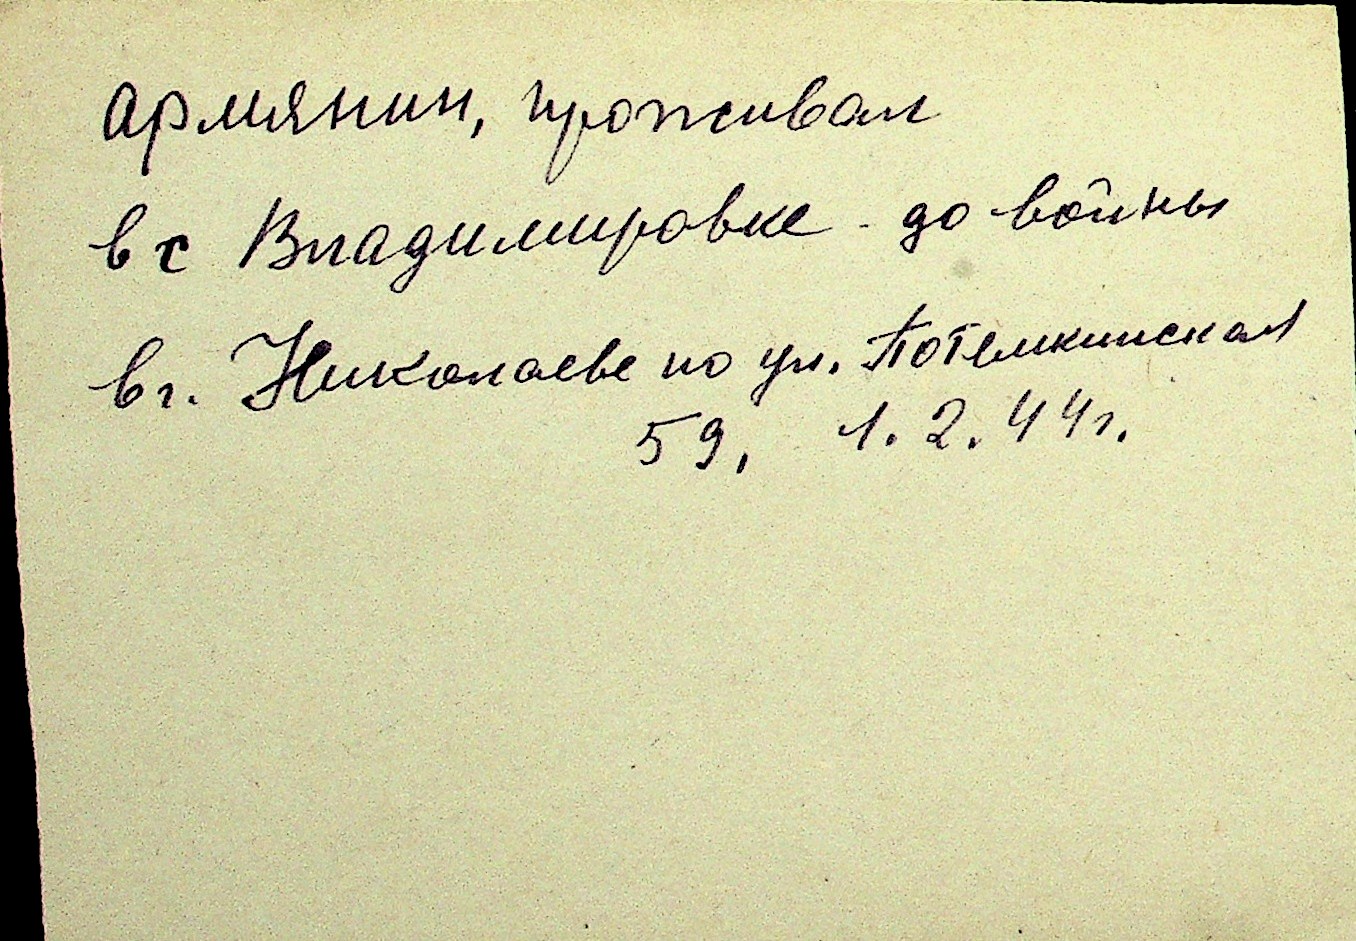 армянин, проживал
в с Владимировке - до войны
в г. Николаеве по ул. Потемкинская
59, 1.2.44г.